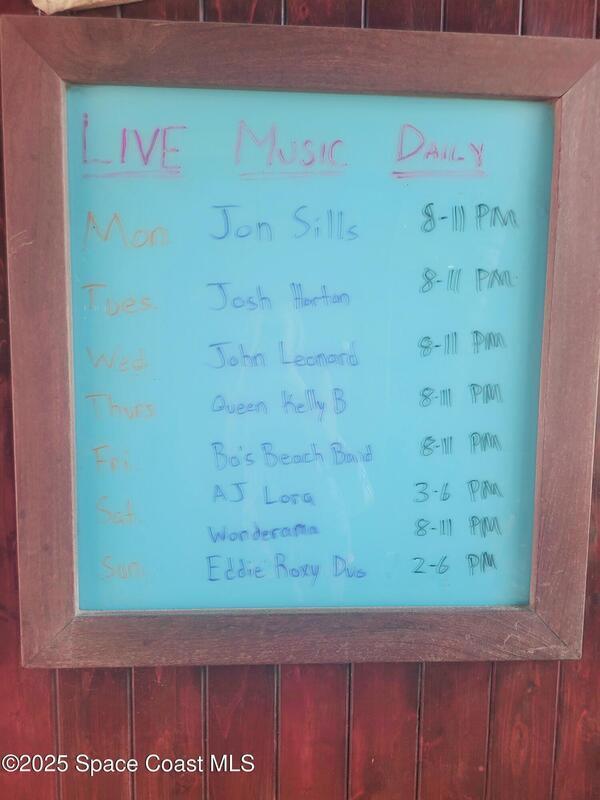 LIVE MUSIC DAILY
Mon. Jon Sills 8-11 PM
Tues. Josh Horton 8-11 PM
Wed. John Leonard 8-11 PM
Thurs. Queen Kelly B 8-11 PM
Fri. Bo's Beach Band 8-11 PM
Sat. AJ Lora 3-6 PM
Wonderama 8-11 PM
Sun. Eddie Roxy Duo 2-6 PM
©2025 Space Coast MLS